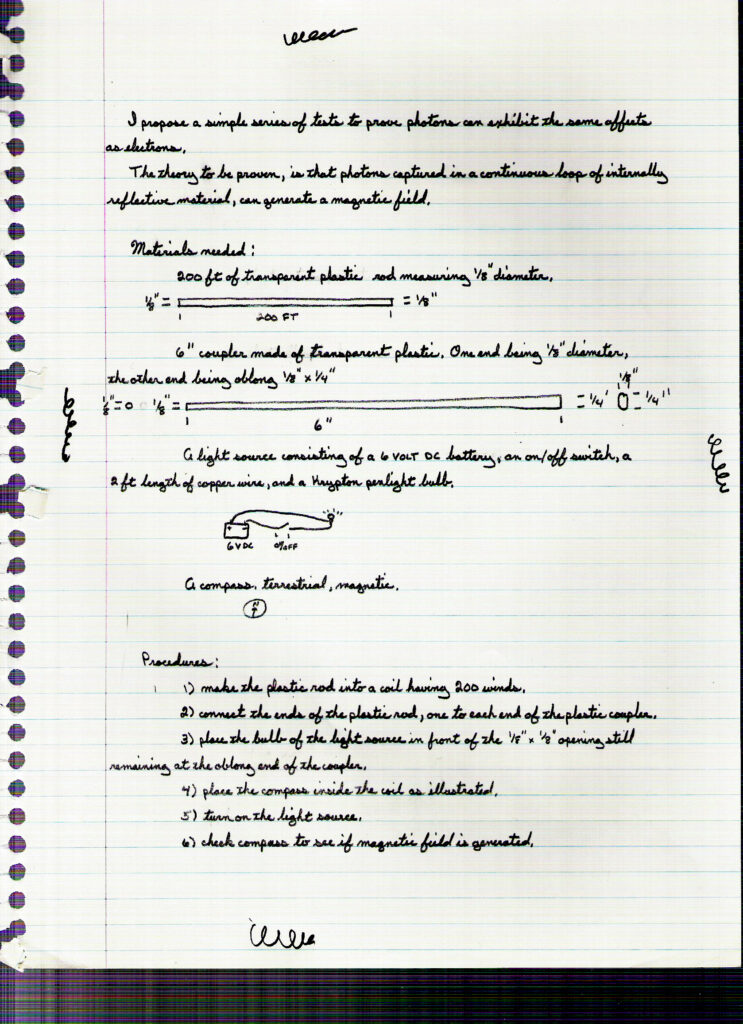 I propose a simple series of tests to prove photons can exhibit the same affects
as electrons.
The theory to be proven, is that photons captured in a continuous loop of internally
reflective material, can generate a magnetic field.
Materials needed:
200 ft of transparent plastic rod measuring 1/8" diameter.
1/8" = = 1/8"
200 FT
6" coupler made of transparent plastic. One end being 1/8" diameter,
the other end being oblong 1/8" x 1/4"
1/8"
1/8" = o 1/8" = = 1/4' = 1/4"
6"
A light source consisting of a 6 VOLT DC battery, an on/off switch, a
2 ft length of copper wire, and a Krypton penlight bulb.
+ -
6 VDC ON/OFF
A compass. terrestrial, magnetic.
N
Procedures:
1) make the plastic rod into a coil having 200 winds.
2) connect the ends of the plastic rod, one to each end of the plastic coupler.
3) place the bulb of the light source in front of the 1/8" x 1/8" opening still
remaining at the oblong end of the coupler.
4) place the compass inside the coil as illustrated.
5) turn on the light source.
6) check compass to see if magnetic field is generated.